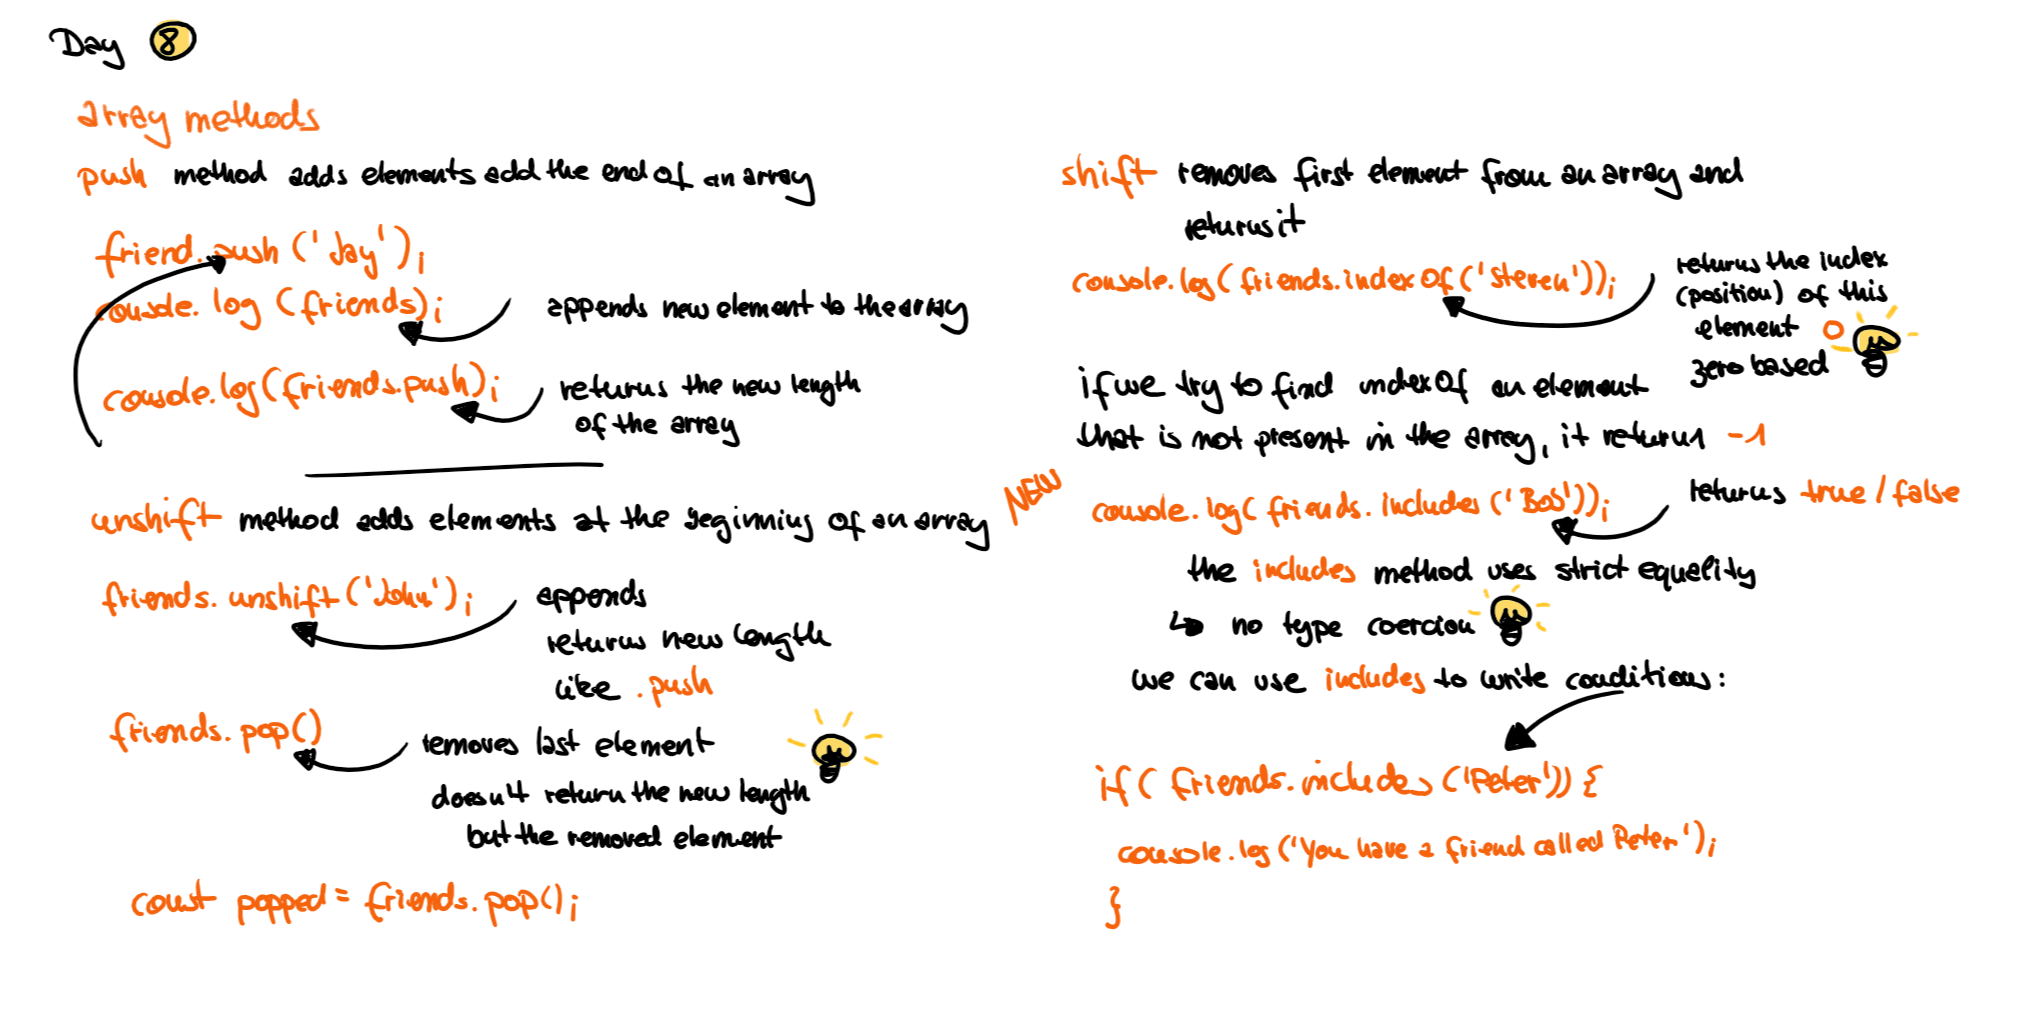 Day 8
array methods
push method adds elements add the end of an array
friend.push ('Jay');
console.log (friends);
appends new element to the array
console.log(friends.push);
returns the new length
of the array
unshift method adds elements at the beginning of an array
friends.unshift('John');
appends
returns new length
like .push
friends.pop()
removes last element
doesn't return the new length
but the removed element
const popped = friends.pop();
shift removes first element from an array and
returns it
console.log(friends.indexOf('Steven'));
returns the index
(position) of this
element 0
zero based
if we try to find indexOf an element
that is not present in the array, it return -1
NEW
console.log(friends.includes('Bob'));
returns true/false
the includes method uses strict equality
↳ no type coercion
we can use includes to write conditions:
if( friends.includes ('Peter')) {
console.log('You have a friend called Peter');
}